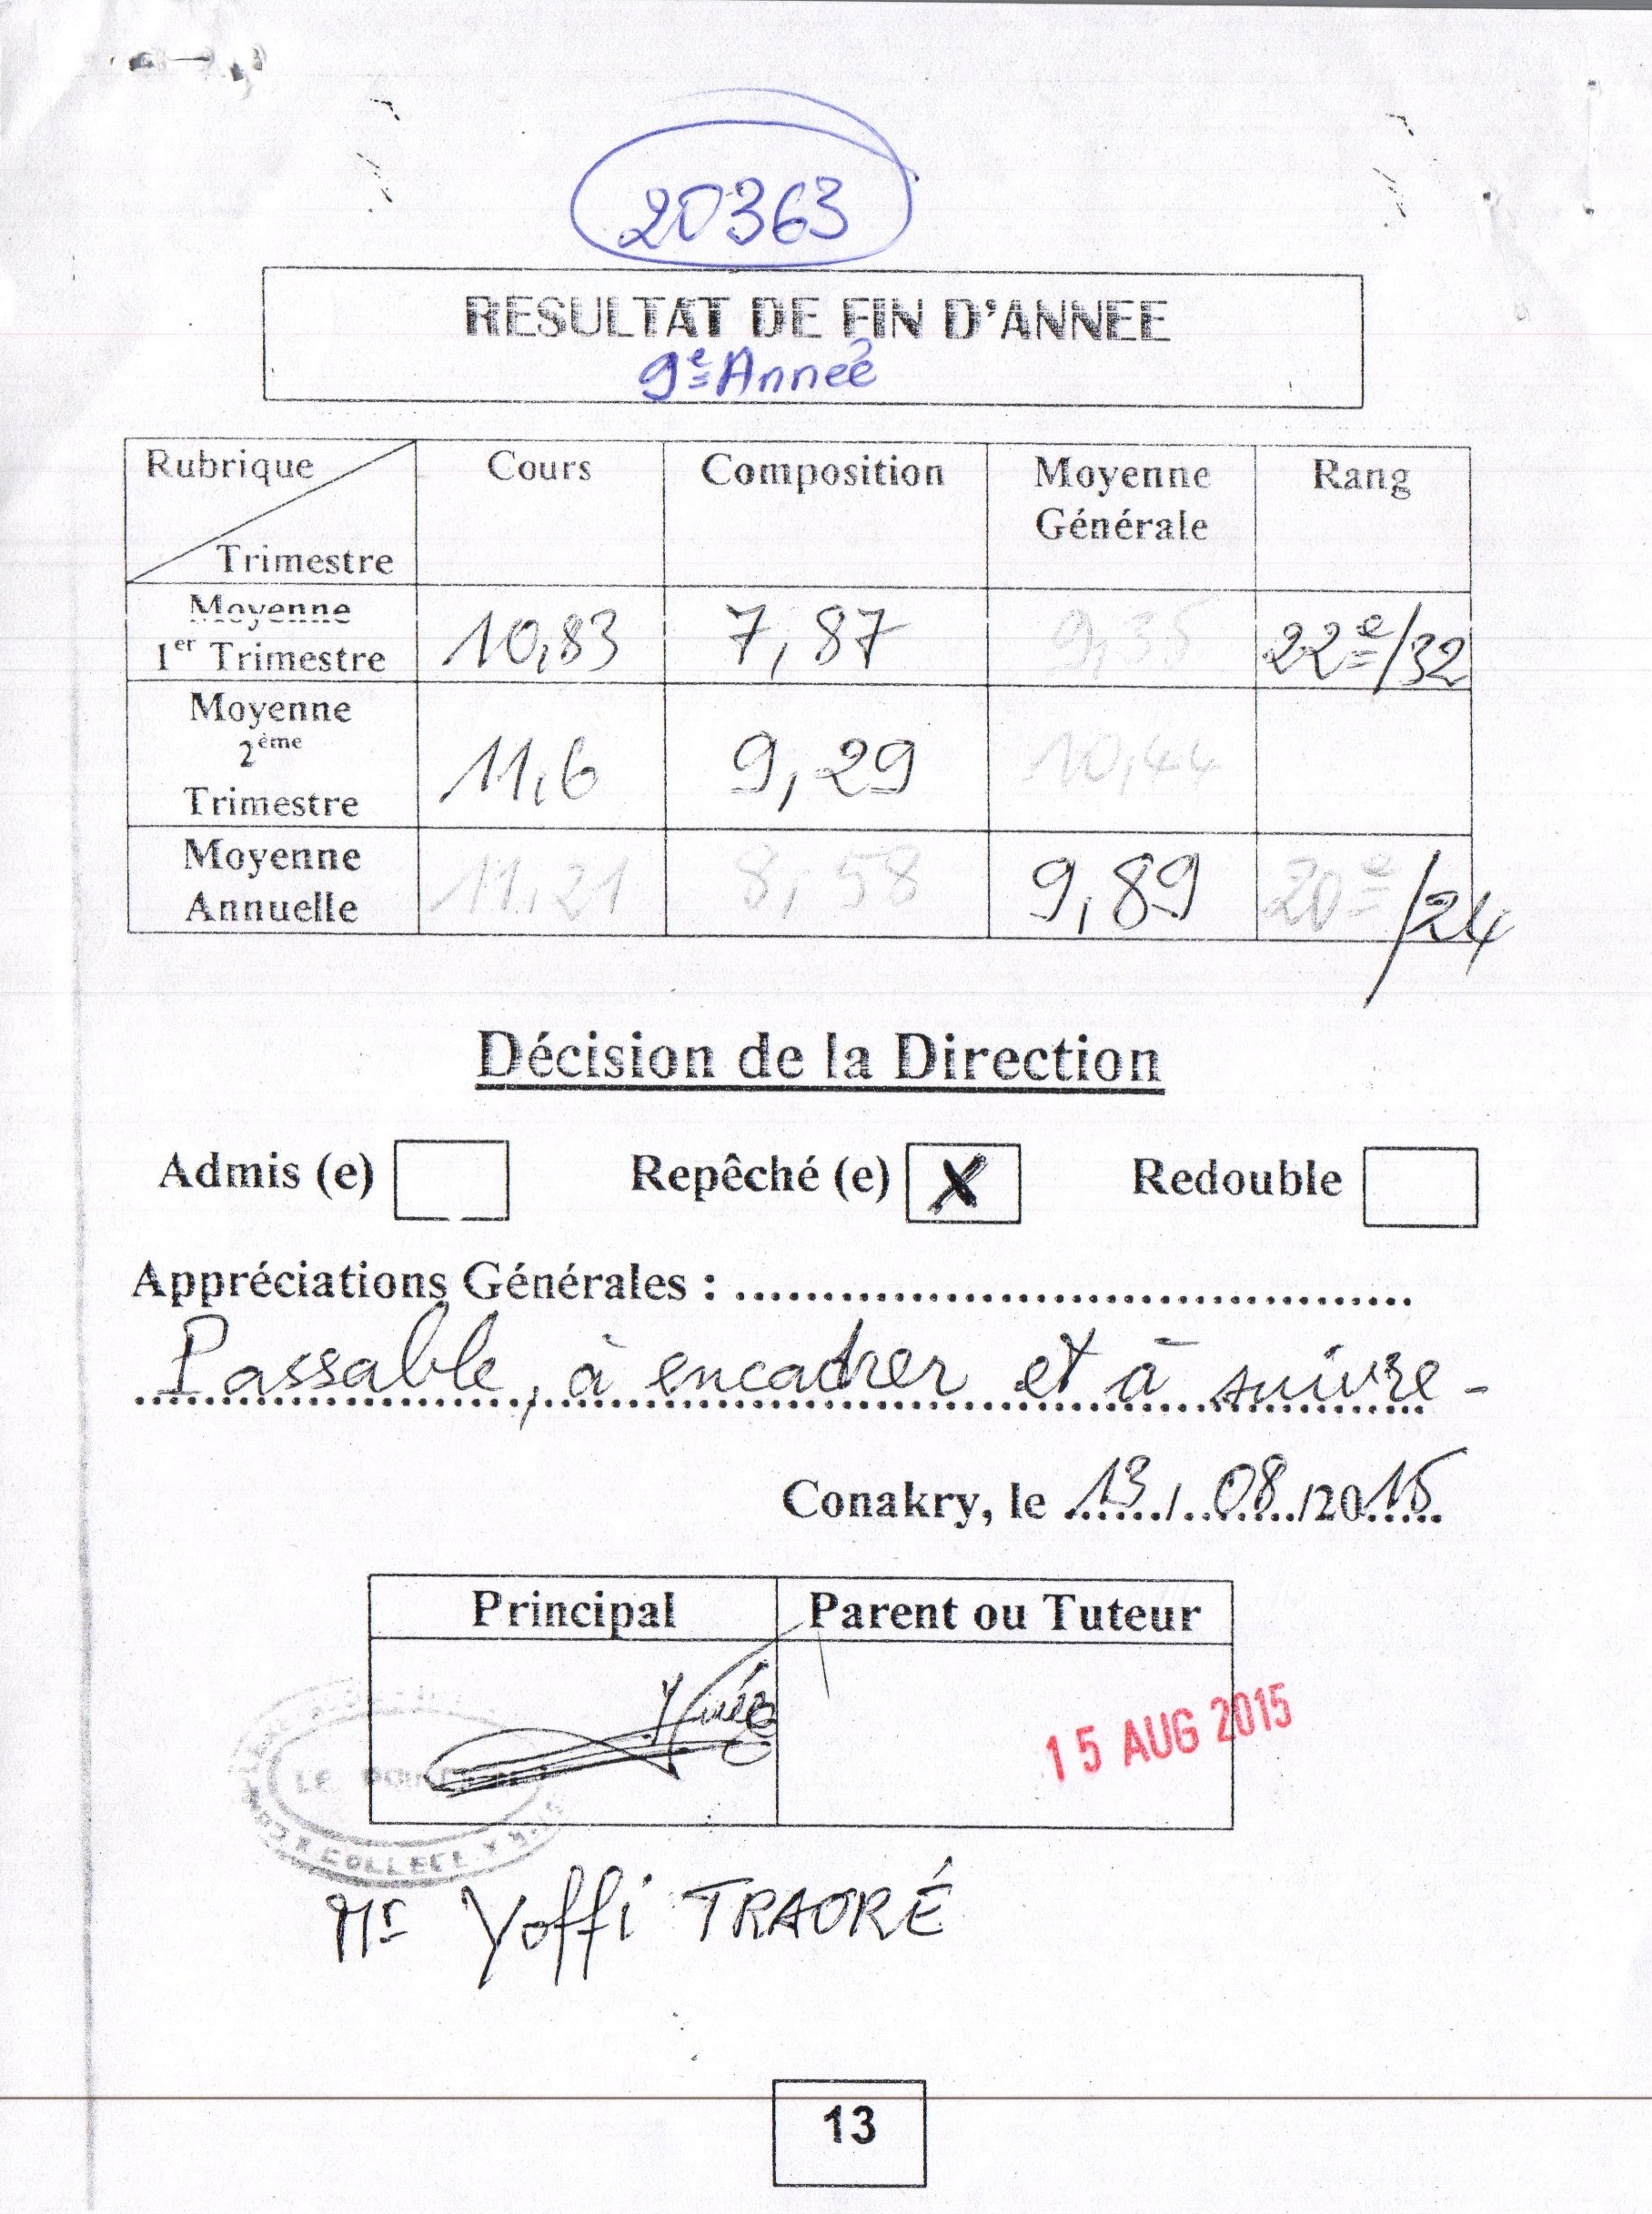 20363
RESULTAT DE FIN D'ANNEE
9e Année
Rubrique Cours Composition Moyenne Rang
Générale
Trimestre
Moyenne
1er Trimestre 10,83 7,87 9,35 22e/32
Moyenne
2ème
Trimestre 11,6 9,29 10,44
Moyenne
Annuelle 11,21 8,58 9,89 20e/24
Décision de la Direction
Admis (e) Repêché (e) X Redouble
Appréciations Générales : ..........................................
Passable, à encadrer et à suivre -
Conakry, le 13/08/2015
Principal Parent ou Tuteur
15 AUG 2015
LE
COLLEGE
Mr Yoffi TRAORÉ
13